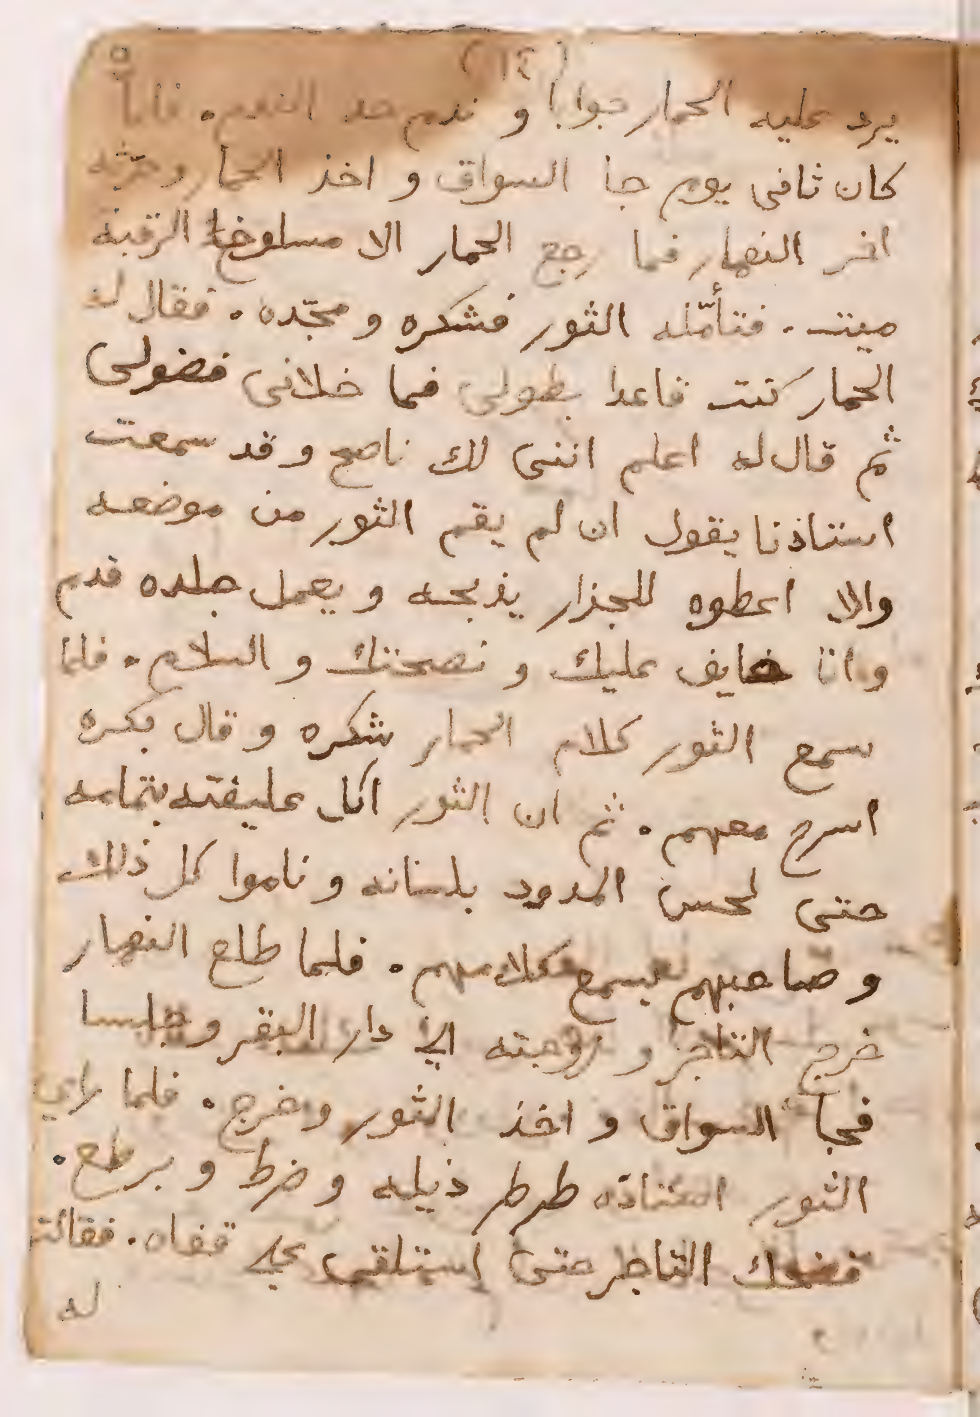 (١٤)
٥
يرد عليه الحمار جوابا و ندم حد الندم. فلما
كان ثانى يوم جا السواق و اخذ الحمار وحرثه
اخر النهار فما رجع الحمار الا مسلوخ الرقبة
ميت. فتأمّله الثور فشكره و مجّده. فقال له
الحمار كنت قاعدا بطولى فما خلانى فضولى
ثم قال له اعلم اننى لك ناصح و قد سمعت
استاذنا يقول ان لم يقم الثور من موضعه
والا اعطوه للجزار يذبحه و يعمل جلده قدم
وانا خايف عليك و نصحتك و السلام. فلما
سمع الثور كلام الحمار شكره و قال بكره
اسرح معهم. ثم ان الثور اكل عليفته بتمامه
حتى لحس المدود بلسانه و ناموا كل ذلك
و صاحبهم يسمع كلامهم. فلما طلع النهار
خرج التاجر و زوجته الى دار البقر و جلسا
فجا السواق و اخذ الثور وخرج. فلما راى
الثور استاذه طرطر ذيله و ضرط و برطع.
فضحك التاجر حتى إستلقى على قفاه. فقالت
له